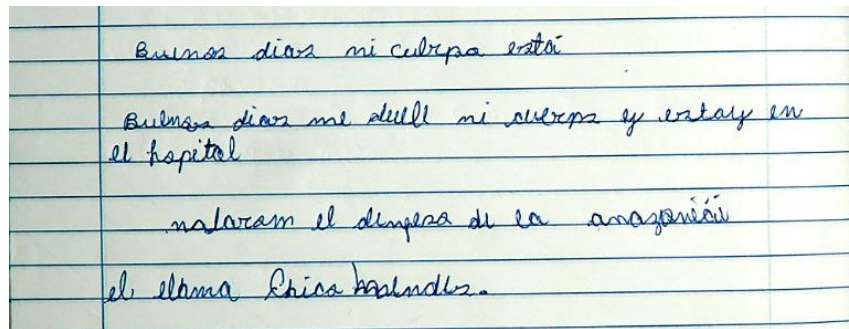 Buenos dias mi cuerpo está
Buenos dias me duele mi cuerpo y estoy en
el hospital
mataram el de la amazonia
el llama Chico